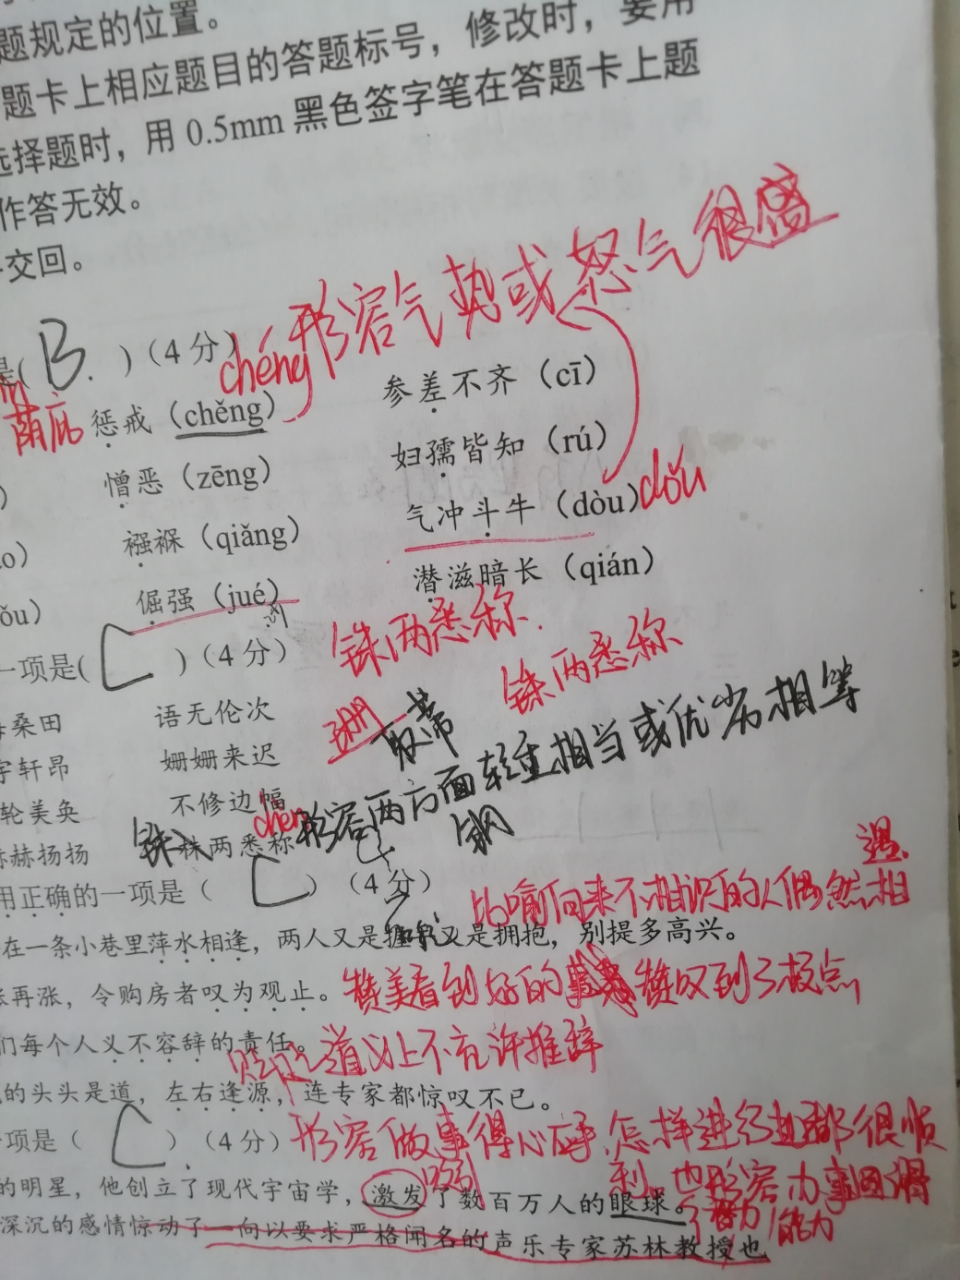 题规定的位置。
题卡上相应题目的答题标号，修改时，要用
选择题时，用 0.5mm 黑色签字笔在答题卡上题
作答无效。
交回。
形容气势或怒气很盛
是( B. )（4 分）
chéng
荫庇
惩戒（chěng） 参差不齐（cī）
憎恶（zēng） 妇孺皆知（rú）
襁褓（qiǎng） 气冲斗牛（dòu） dǒu
倔强（jué） 潜滋暗长（qián）
一项是( C )（4 分）
铢两悉称
铢两悉称
桑田 语无伦次
宇轩昂 姗姗来迟
轮美奂 不修边幅
赫赫扬扬 株两悉称
chèn
形容两方面轻重相当或优劣相等
用正确的一项是（ C ）（4 分）
比喻向来不相识的人偶然相遇.
在一条小巷里萍水相逢，两人又是握手又是拥抱，别提多高兴。
涨再涨，令购房者叹为观止。
赞美看到好的事 赞叹到了极点
们每个人义不容辞的责任。
道义上不允许推辞
的头头是道，左右逢源，连专家都惊叹不已。
一项是（ C ）（4 分）
形容做事得心应手，怎样进行都很顺利。也形容办事圆滑
吸引
的明星，他创立了现代宇宙学，激发了数百万人的眼球。
能力
深沉的感情惊动了一向以要求严格闻名的声乐专家苏林教授也